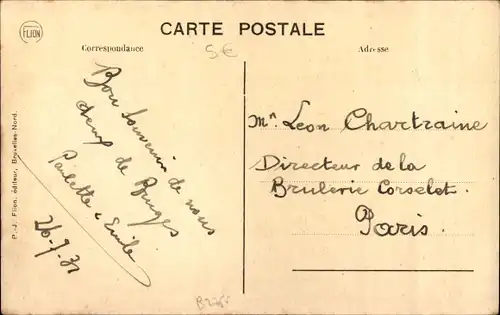 FLION
CARTE POSTALE
5€
Correspondance
Adresse
Bon souvenir de nous
deux de Bruges
Paulette & Emile
26-7-31
P.-J. Flion, éditeur, Bruxelles-Nord.
Mr. Leon Chartraine
Directeur de la
Brulerie Corselet.
Paris.